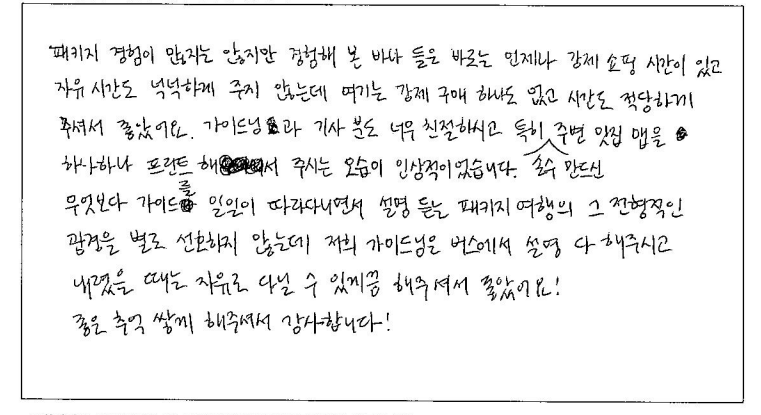 패키지 경험이 많지는 않지만 경험해 본 바나 들은 바로는 언제나 강제 쇼핑 시간이 있고
자유 시간도 넉넉하게 주지 않는데 여기는 강제 구매 하나도 없고 시간도 적당하게
주셔서 좋았어요. 가이드님과 기사 분도 너무 친절하시고 특히 주변 맛집 맵을
손수 만드신
하나하나 프린트 해서 주시는 모습이 인상적이었습니다.
무엇보다 가이드를 일일이 따라다니면서 설명 듣는 패키지 여행의 그 전형적인
광경을 별로 선호하지 않는데 저희 가이드님은 버스에서 설명 다 해주시고
내렸을 때는 자유로 다닐 수 있게끔 해주셔서 좋았어요!
좋은 추억 쌓게 해주셔서 감사합니다!